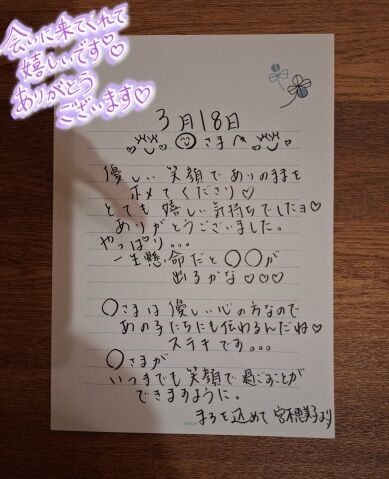 会いに来てくれて
嬉しいです♡
ありがとう
ございます♡
3月18日
さまへ
優しい笑顔でありのままを
ホメてくださり♡
とても嬉しい気持ちでしたヨ♡
ありがとうございました。
やっぱり...
一生懸命だと〇〇が
出るかな♡♡♡
〇さまは優しい心の方なので
あの子たちにも伝わるんだね♡
ステキです。。。
〇さまが
いつまでも笑顔で過ごすことが
できますように。
を込めて 宮本恵子より